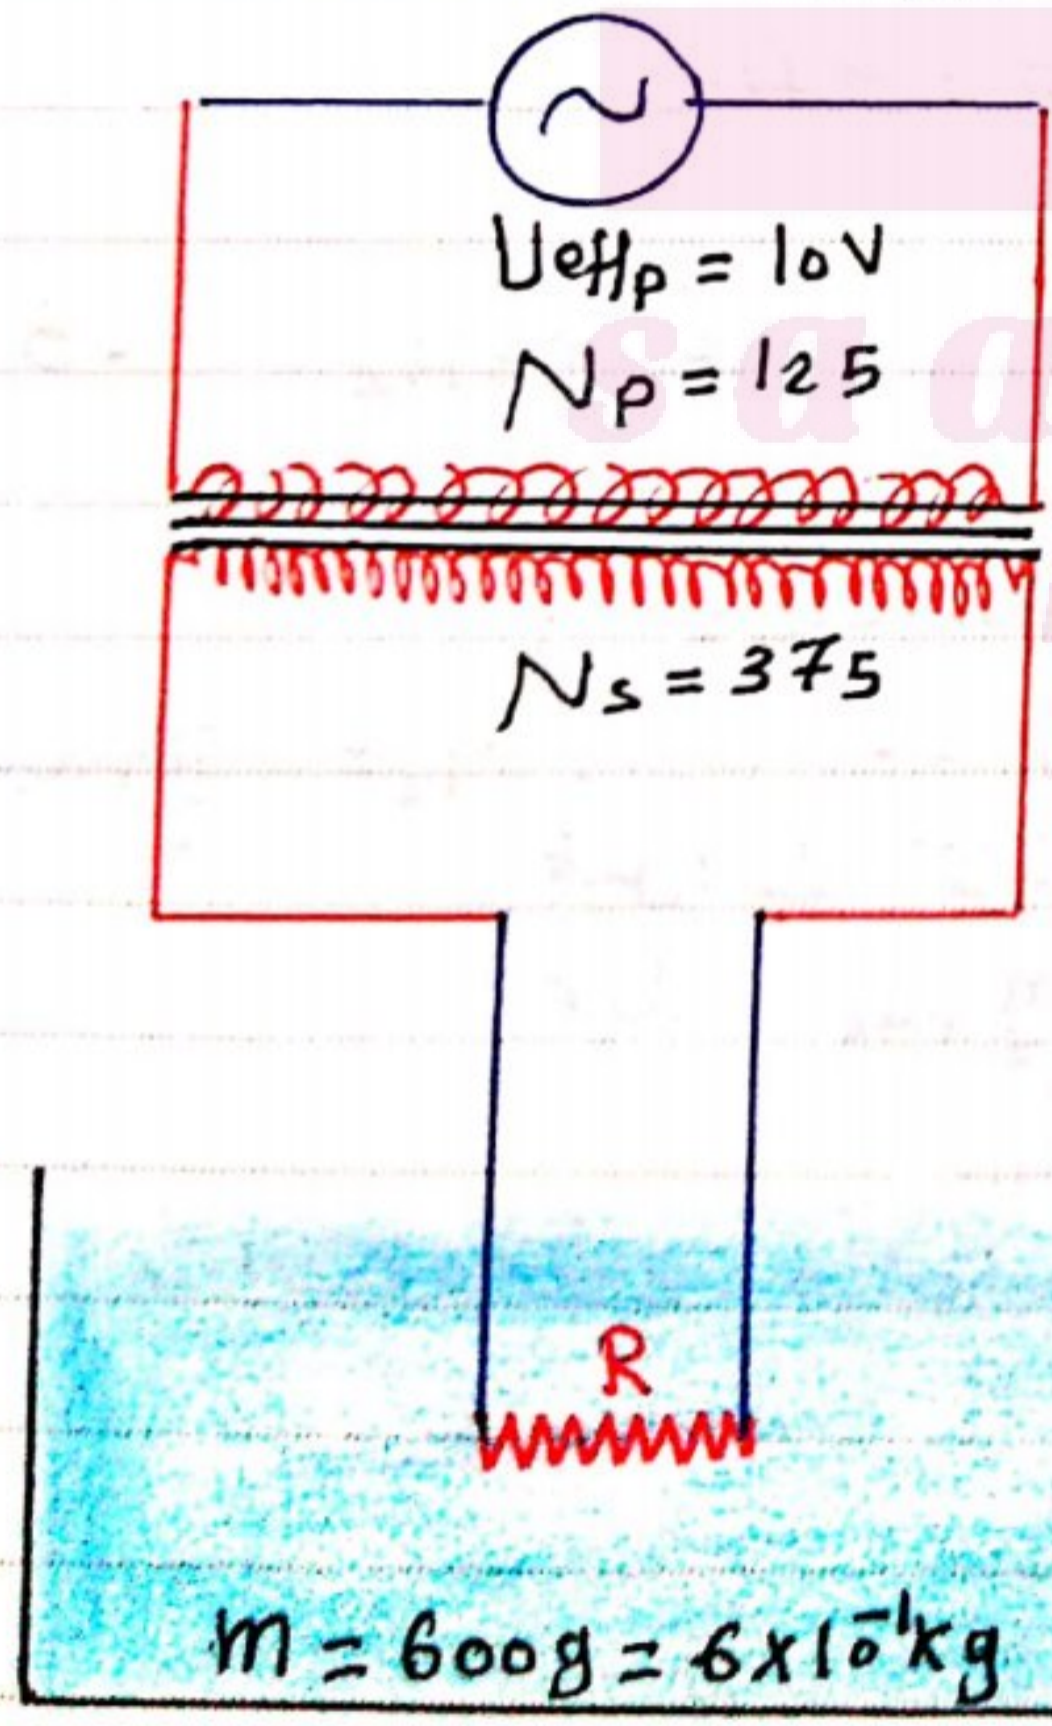 Ueffp = 10V
Np = 125
saa
Ns = 375
R
m = 600g = 6x10⁻¹kg